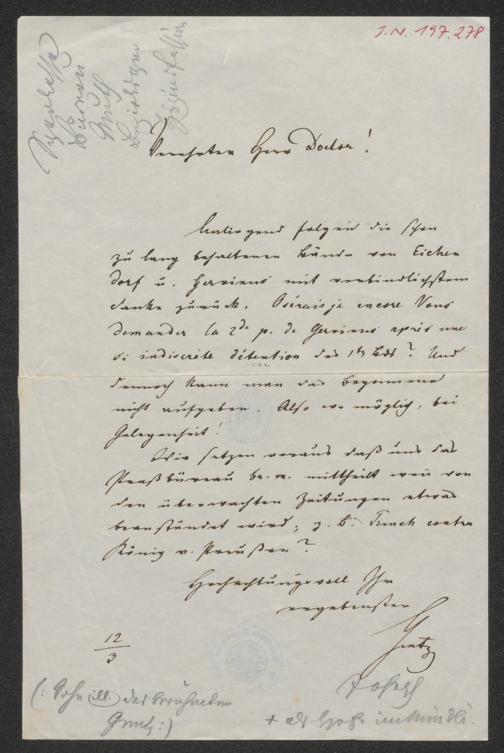 I.N. 197.278
Verehrter Herr Doctor!
Anliegend folgen die schon
zu lang behaltenen Bände von Eichen
dorf u. Gervinus mit verbindlichstem
Danke zurück. Oserais je encore Vous
demander la 2de p. de Gervinus après une
si indiscrète détention des 1ten Bds? Und
dennoch kann man das Begonnene
nicht aufgeben. Also wo möglich, bei
Gelegenheit!
Wir setzen voraus daß uns das
Preßbüreau br. m. mittheilt wenn von
den überwachten Zeitungen etwas
beanständet wird; z. B. Punch contra
König v. Preußen?
Hochachtungsvoll Ihr
ergebenster
Gentz
12
3
Joseph
(: Sohn ill. des berühmten
Gentz :)
+ als Hofs